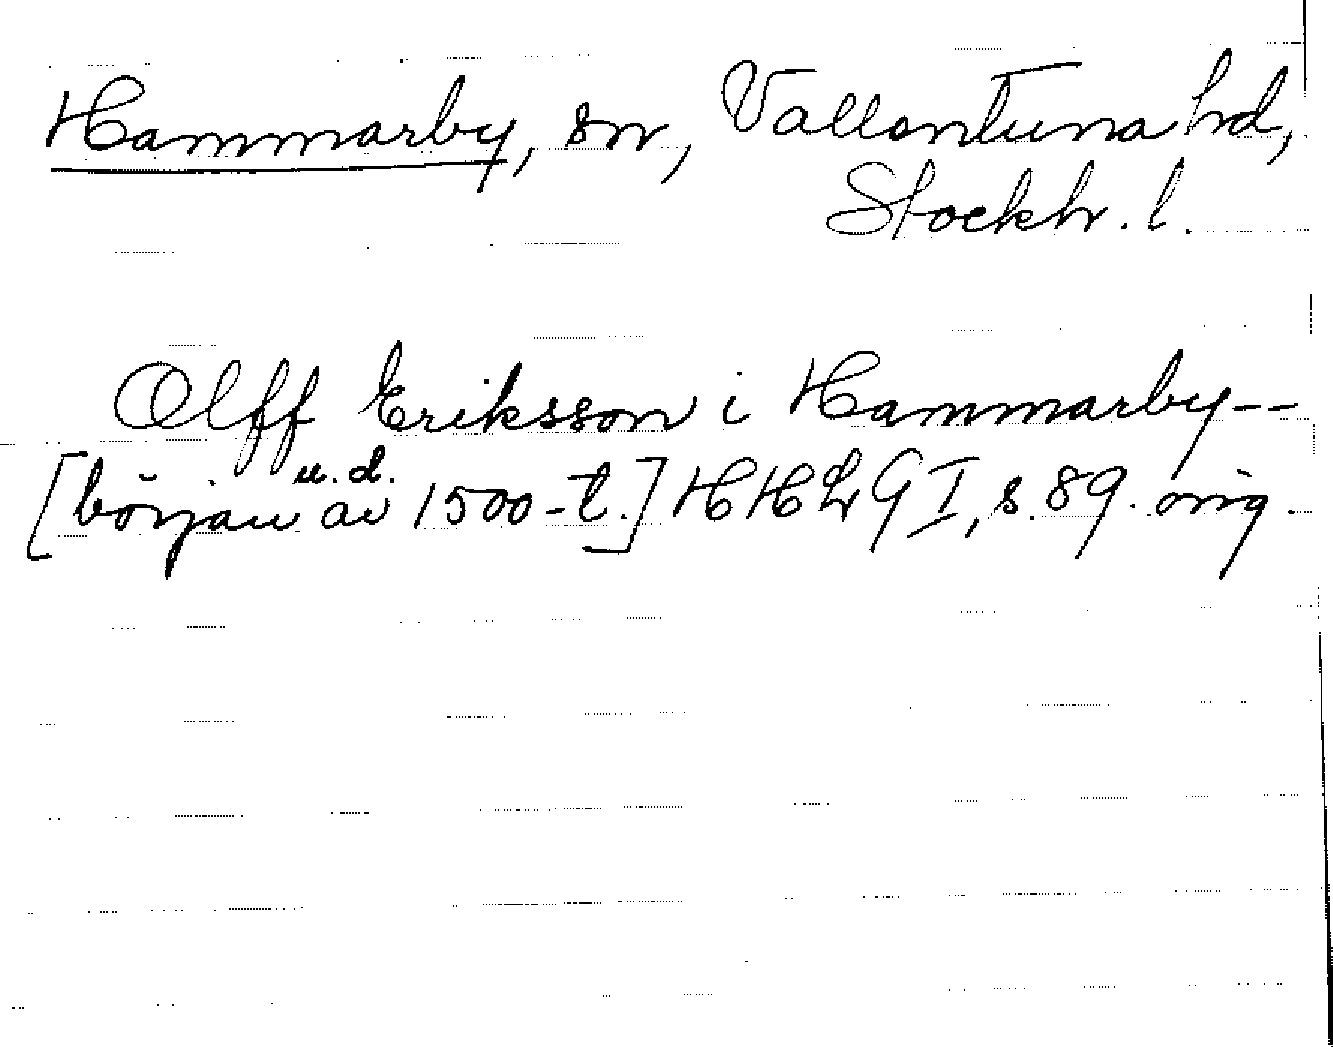 Hammarby, sn, Vallentuna hd,
Stockh. l.
Olff Eriksson i Hammarby--
u.d.
[början av 1500-t.] HHLG I, s. 89. orig.